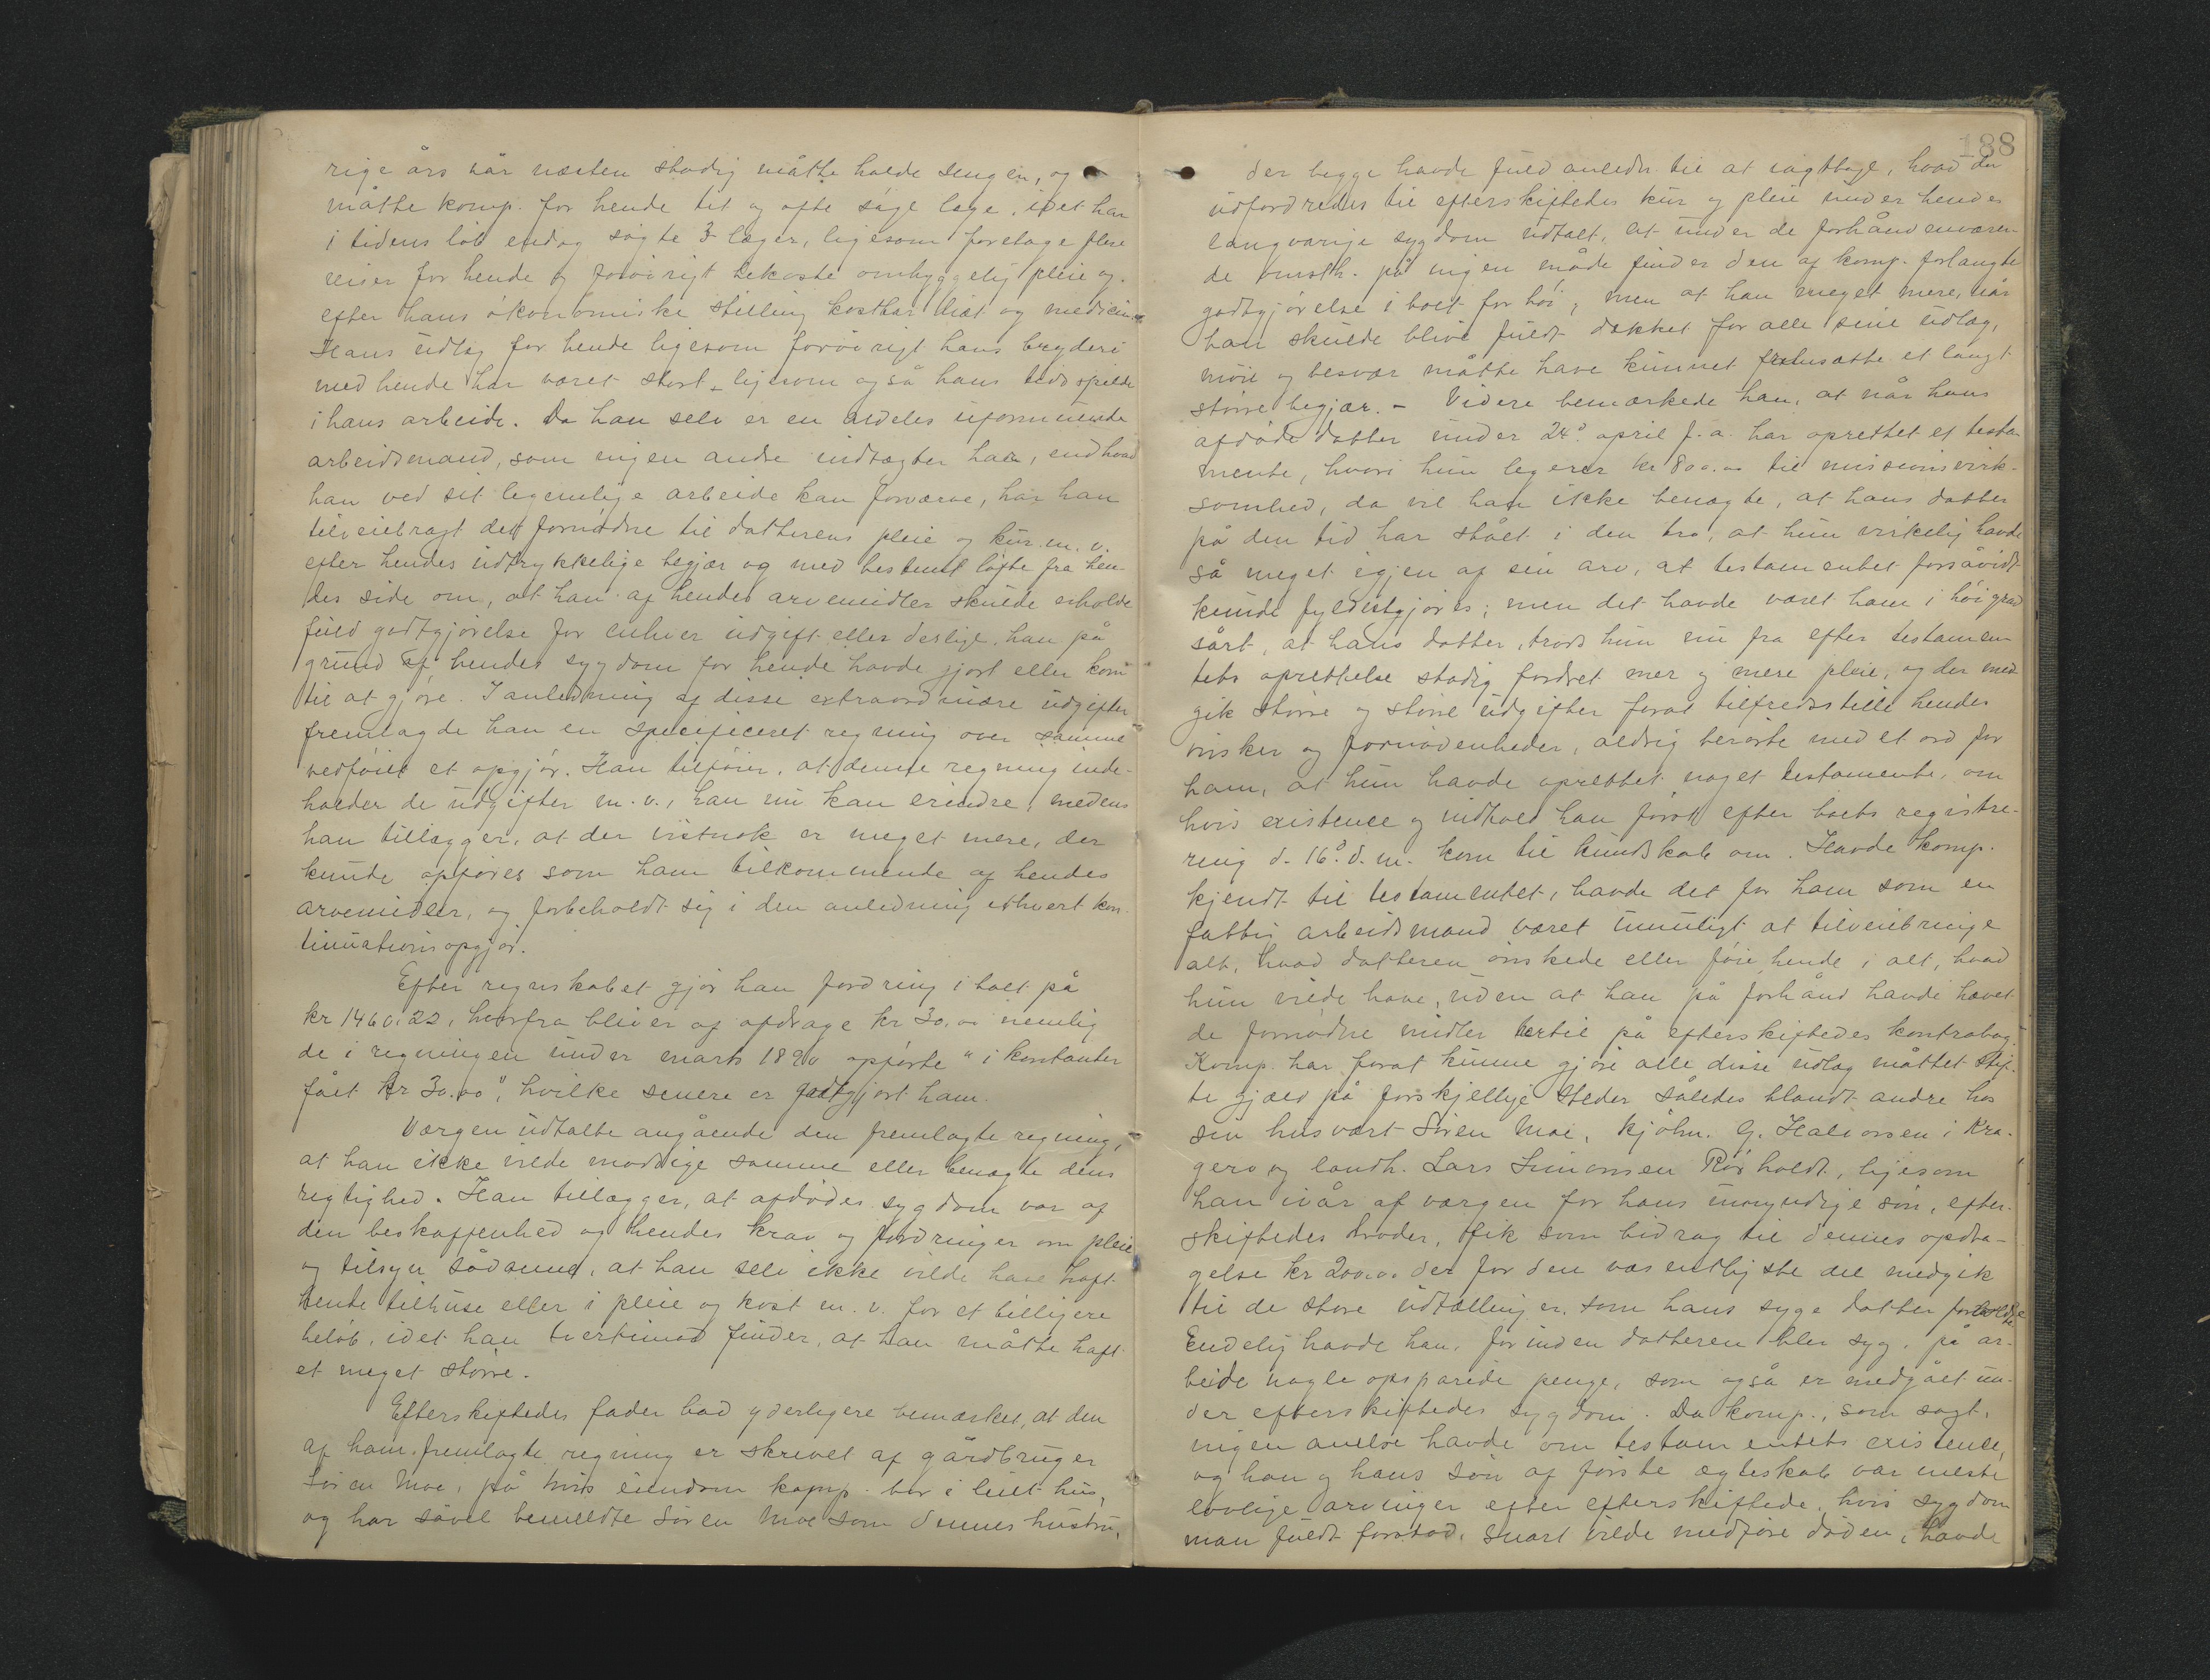 rige års vår næsten stadig måtte holde sengen, og
måtte komp. for hende tit og ofte søge læge, idet han
i tidens løb endog søgte 3 læger, ligesom foretage flere
reiser for hende og forøvrigt bekoste omhyggelig pleie og
efter hans økonomiske stilling kostbar diæt og medicin.
Hans udlæg for hende ligesom forøvrigt hans bryderi
med hende har været stort – ligesom også hans tidsspilde
i hans arbeide. Da han selv er en aldeles uformuende
arbeidsmand, som ingen andre indtægter har, end hvad
han ved sit legemlige arbeide kan forværve, har han
tilveiebragt det fornødne til datterens pleie og kur m. v.
efter hendes udtrykkelige begjær og med bestemt løfte fra hen-
des side om, at han af hendes arvemidler skulde erholde
fuld godtgjørelse for enhver udgift eller deslige, han på
grund af hendes sygdom for hende havde gjort eller kom
til at gjøre. I anledning af disse extraordinære udgifter
fremlagde han en specificeret regning over samme
vedføiet et opgjør. Han tilføier, at denne regning inde-
holder de udgifter m. v., han nu kan erindre, medens
han tillægger, at der vistnok er meget mere, der
kunde opføres som ham tilkommende af hendes
arvemidler, og forbeholdt sig i den anledning ethvert kon-
tinuationsopgjør.
Efter regnskabet gjør han fordring i boet på
kr 1460,22, hvorfra bliver at afdrage kr 30.00 nemlig
de i regningen under marts 1890 opførte "i kontanter
fået kr 30.00", hvilke senere er godtgjort ham.
Værgen udtalte angående den fremlagte regning,
at han ikke vilde modsige samme eller benægte dens
rigtighed. Han tillægger, at afdødes sygdom var af
den beskaffenhed og hendes krav og fordringer om pleie
og tilsyn sådanne, at han selv ikke vilde have haft
hende tilhuse eller i pleie og kost m. v. for et billigere
beløb, idet han tvertimod finder, at han måtte haft
et meget større.
Efterskiftedes fader bad yderligere bemærket, at den
af ham fremlagte regning er skrevet af gårdbruger
Søren Moe, på hvis eiendom komp. bor i leiet hus,
og har såvel bemeldte Søren Moe som dennes hustru,
188
der begge havde fuld anledn. til at iagttage, hvad der
udfordredes til efterskiftedes kur og pleie under hendes
langvarige sygdom udtalt, at under de forhåndenværen-
de omsth. på ingen måde finder den af komp. forlangte
godtgjørelse i boet for høi, men at han meget mere, når
han skulde blive fuldt dækket for alle sine udlæg,
møie og besvær måtte have kunnet fremsætte et langt
større begjær. – Videre bemærkede han, at når hans
afdøde datter under 24de april f. a. har oprettet et testa-
mente, hvori hun legerer kr 800.00 til missionsvirk-
somhed, da vil han ikke benægte, at hans datter
på den tid har stået i den tro, at hun virkelig havde
så meget igjen af sin arv, at testamentet forsåvidt
kunde fyldestgjøres; men det havde været ham i høi grad
sårt, at hans datter, trods hun nu fra efter testamen-
tets oprettelse stadig fordret mer og mere pleie, og der med
gik større og større udgifter forat tilfredsstille hendes
ønsker og fornødenheder, aldrig berørte med et ord for
ham, at hun havde oprettet noget testamente, om
hvis existence og indhold han først efter boets registre-
ring d. 16de d. m. kom til kundskab om. Havde komp.
kjendt til testamentet, havde det for ham som en
fattig arbeidsmand været umuligt at tilveiebringe
alt, hvad datteren ønskede eller føie hende i alt, hvad
hun vilde have, uden at han på forhånd havde hævet
de fornødne midler hertil på efterskiftedes kontrabog.
Komp. har forat kunne gjøre alle disse udlæg måttet stif-
te gjæld på forskjellige steder således blandt andre hos
sin husvært Søren Moe, kjøbm. G. Halvorsen i Kra-
gerø og landh. Lars Simonsen Rørholdt, ligesom
han iår af værgen for hans umyndige søn, efter-
skiftedes broder, fik som bidrag til dennes opdra-
gelse kr 200.00 der for den væsentligste del medgik
til de store udtællinger, som hans syge datter forvoldte.
Endelig havde han, forinden datteren blev syg, på ar-
beide nogle opsparede penge, som også er medgået un-
der efterskiftedes sygdom. Da komp., som sagt,
ingen anelse havde om testamentets existence,
og han og hans søn af første ægteskab var neste
lovlige arvinger efter efterskiftede, hvis sygdom
man fuldt forstod, snart vilde medføre døden, havde